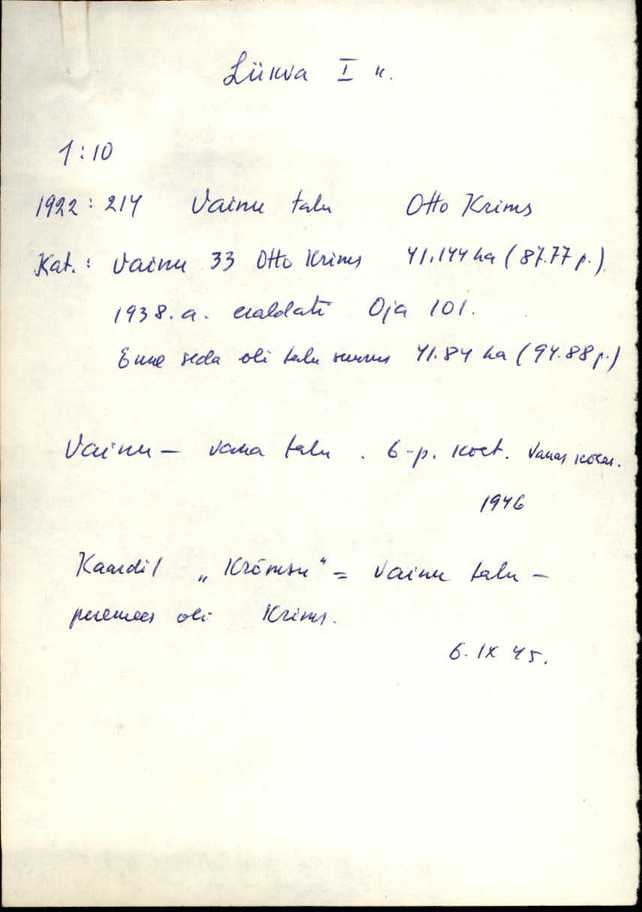 Liikva I k.
1:10
1922: 214 Vainu talu Otto Krims
Kat.: Vainu 33 Otto Krims 41.144 ha (87.77 p.)
1938. a. eraldati Oja 101.
Enne seda oli talu suurus 41.84 ha (94.88 p.)
Vainu – vana talu. 6-p. koct. Vanas kohas.
1946
Kaardil „Krõmsu" = Vainu talu –
peremees oli Krims.
6. IX 45.